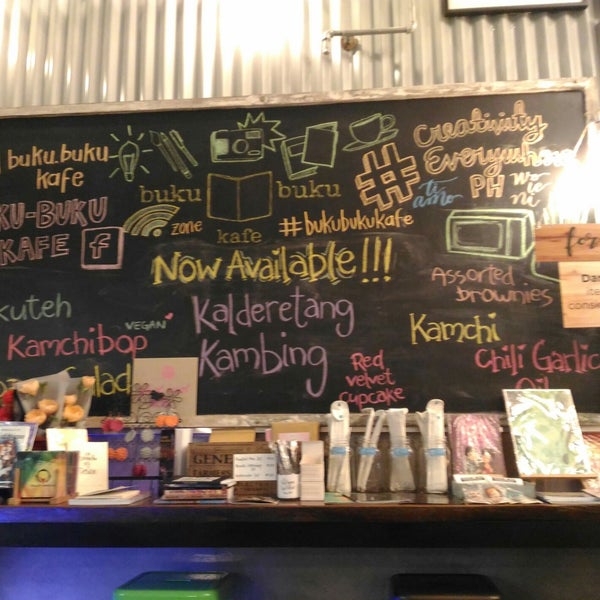 buku.buku
kafe
KU-BUKU
KAFE f
buku buku
kafe
zone
#bukubukukafe
#
Creativity
Everywhere
ti
amo
PH
Now Available!!!
Assorted
brownies
kuteh
VEGAN
Kamchibop
Salad
Kalderetang
Kambing
Red
velvet
cupcake
Kamchi
Chili Garlic
Oil
for
GENE